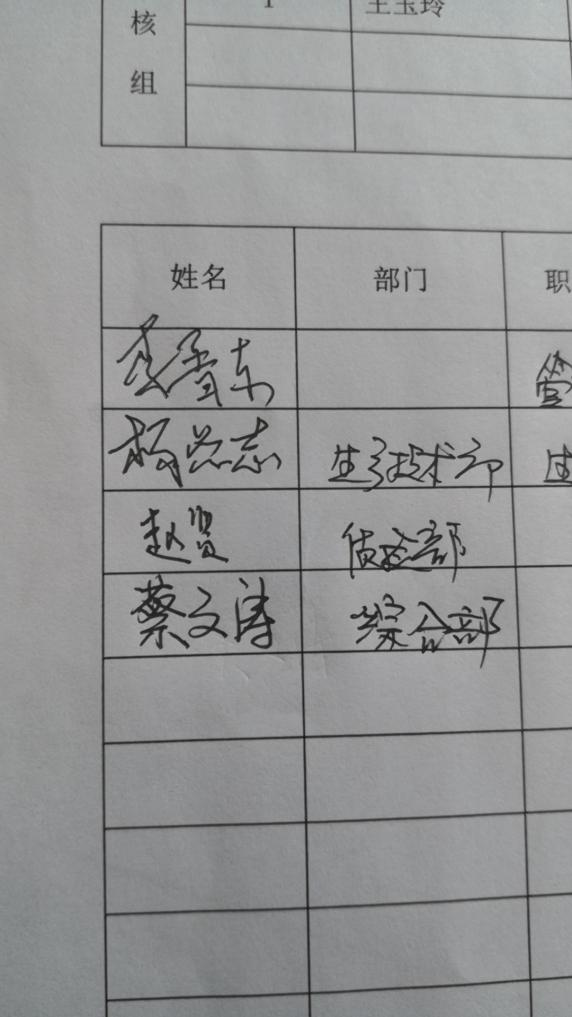 核组 1 王玉玲
姓名 部门 职
李香东 管
杨兴志 生产技术部 生
赵贤 质检部
蔡文涛 综合部